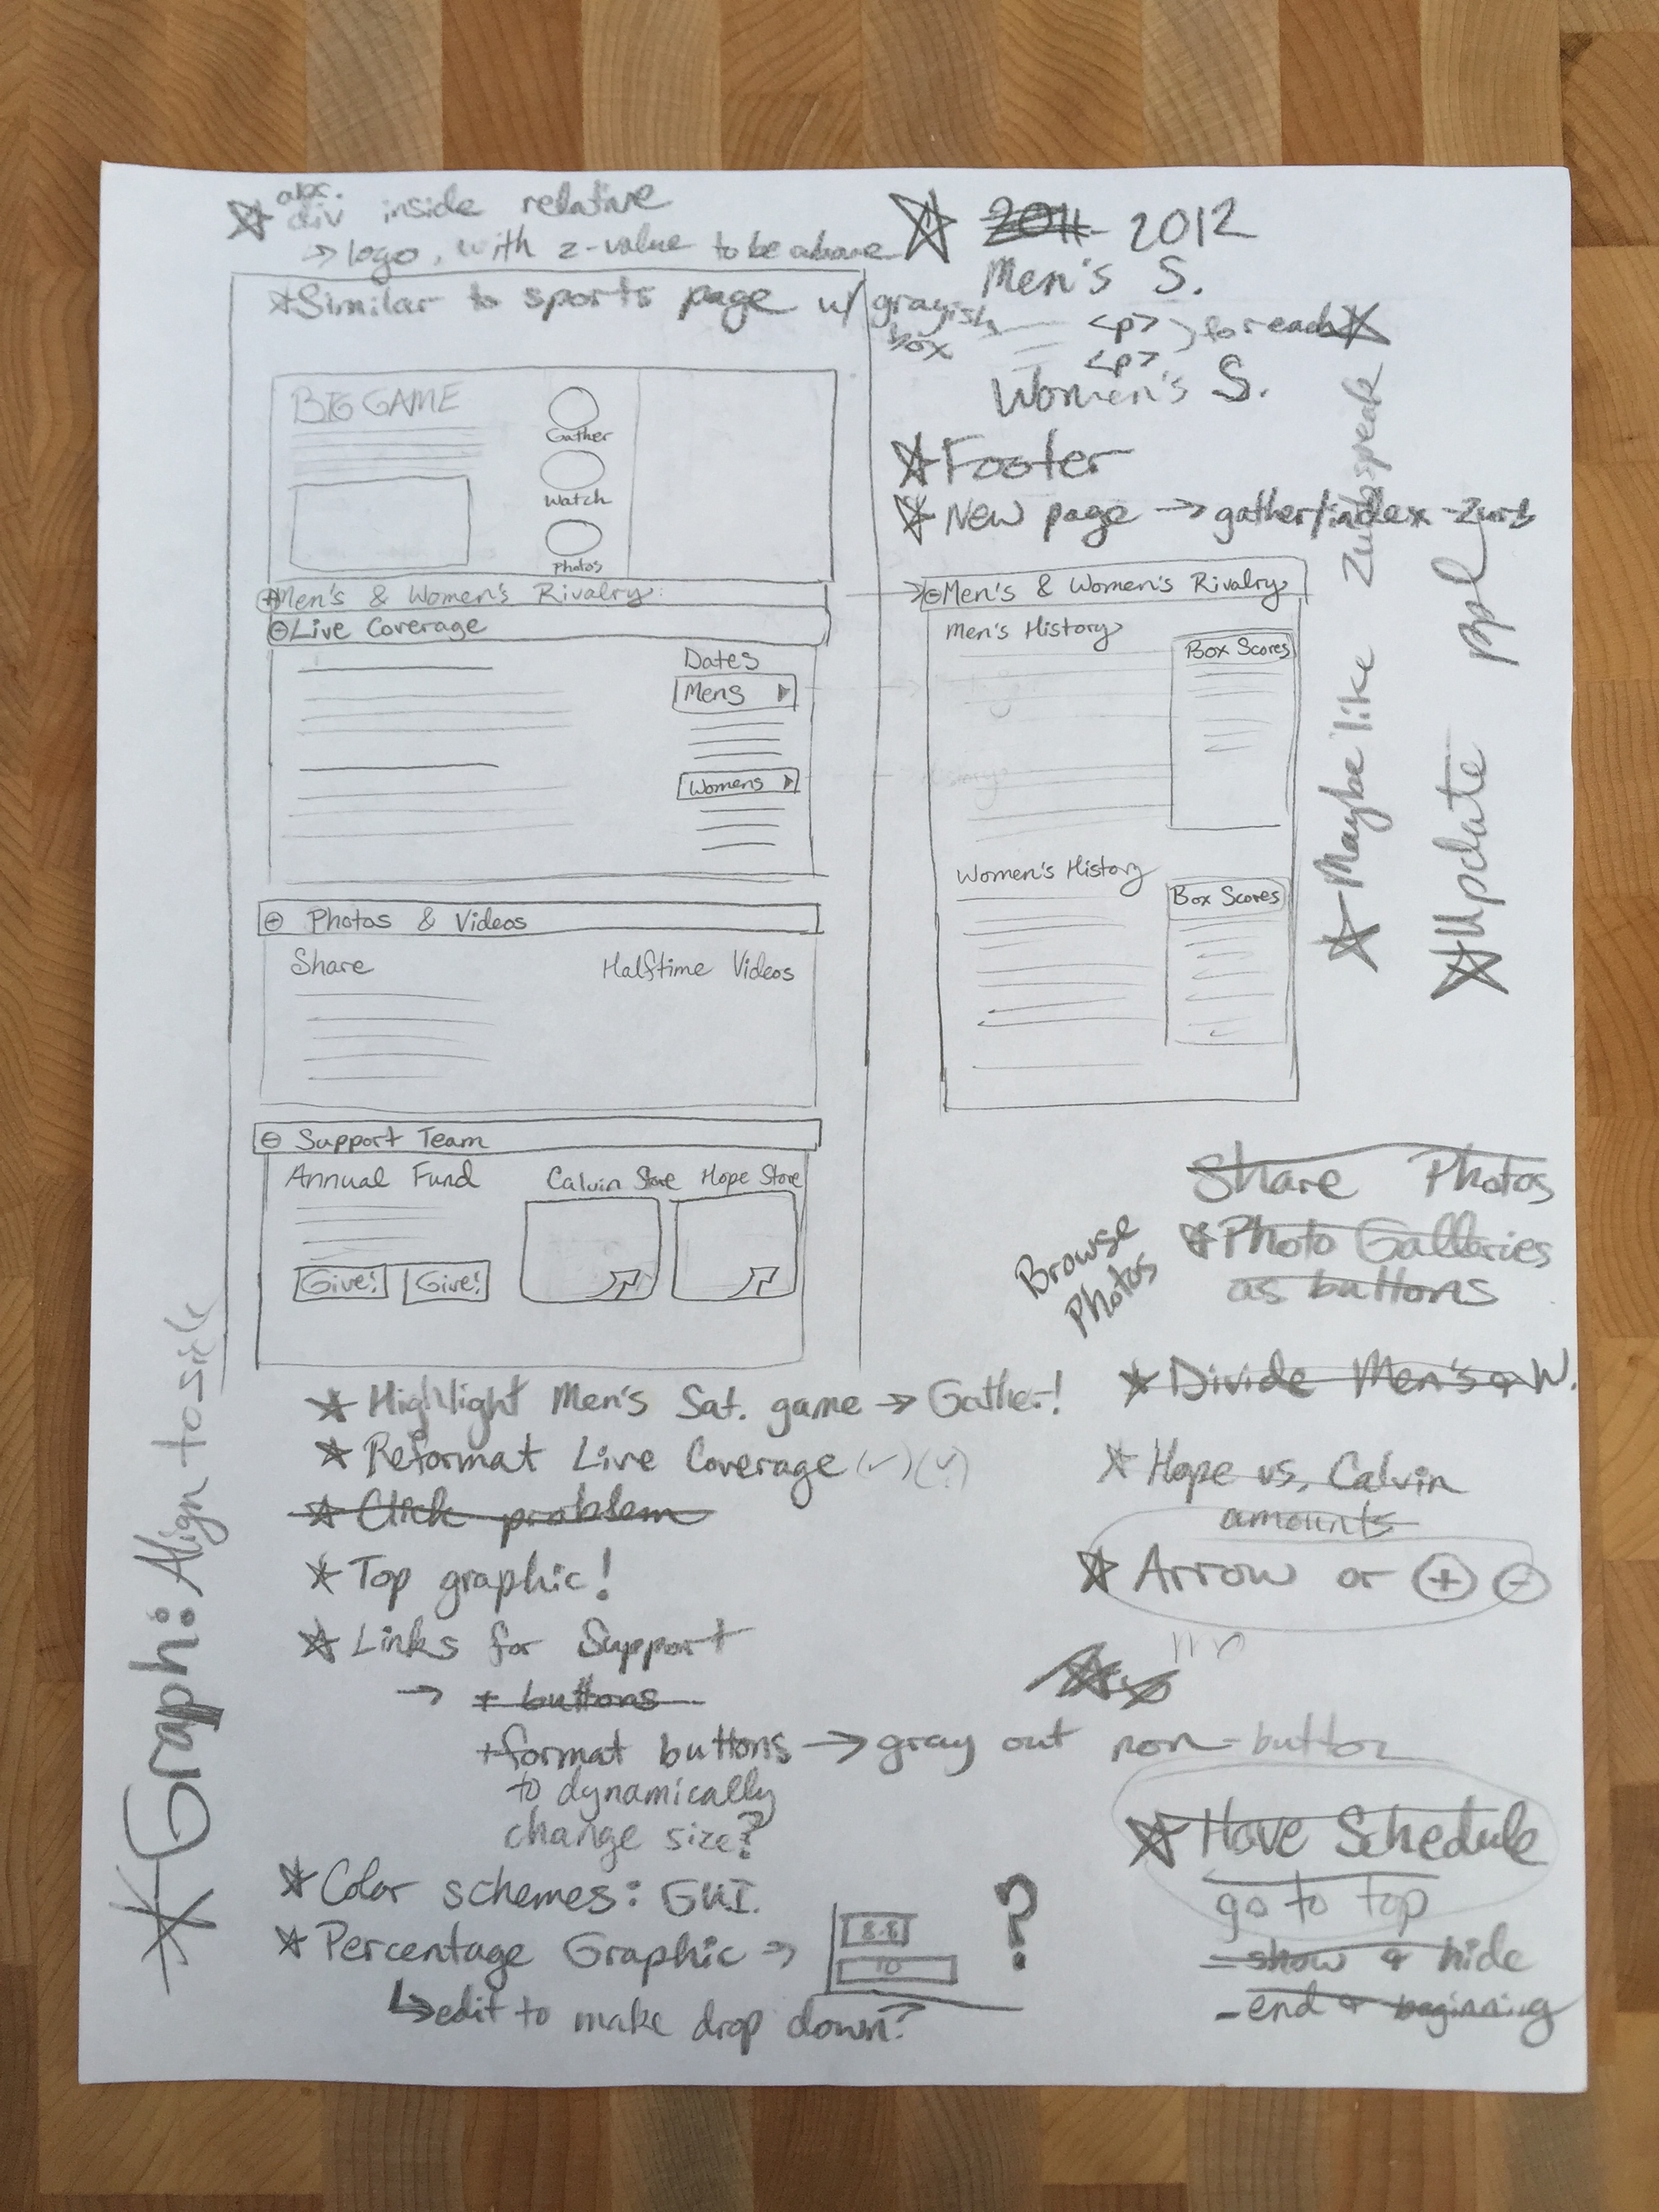 abs.
div inside relative
→ logo, with z-value to be above
*Similar to sports page w/ grayish
box
BIG GAME
Gather
Watch
Photos
Men's & Women's Rivalry
Live Coverage
Dates
Mens
Womens
Photos & Videos
Share
Halftime Videos
Support Team
Annual Fund
Calvin Store
Hope Store
Give!
Give!
2011 2012
Men's S.
<p> } for each
<p>
Women's S.
Footer
New page → gather/index-zurb
Men's & Women's Rivalry
Men's History
Box Scores
Women's History
Box Scores
Maybe like
Update ppl
Share Photos
Photo Galleries
as buttons
Browse
Photos
Divide Men's & W.
Hope vs. Calvin
amounts
Arrow or + -
Have Schedule
go to top
- show & hide
- end & beginning
Highlight Men's Sat. game → Gather!
Reformat Live Coverage (✓)(✓)
Click problem
Top graphic!
Links for Support
→ + buttons
+format buttons → gray out non-button
to dynamically
change size?
Color schemes: GUI.
Percentage Graphic → ?
8.8
10
↳ edit to make drop down?
Graph: Align to side